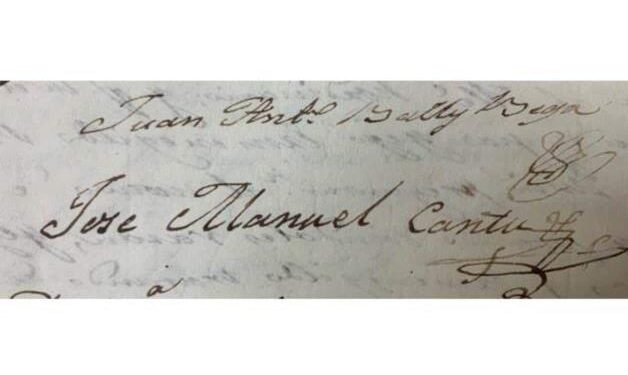 Juan Anto. Bally Bega
Jose Manuel Cantu